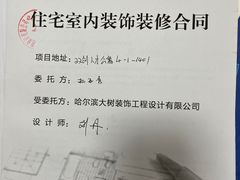 住宅室内装饰装修合同
项目地址: 4-1-1401
委托方:
受委托方: 哈尔滨大树装饰工程设计有限公司
设计师: 刘丹